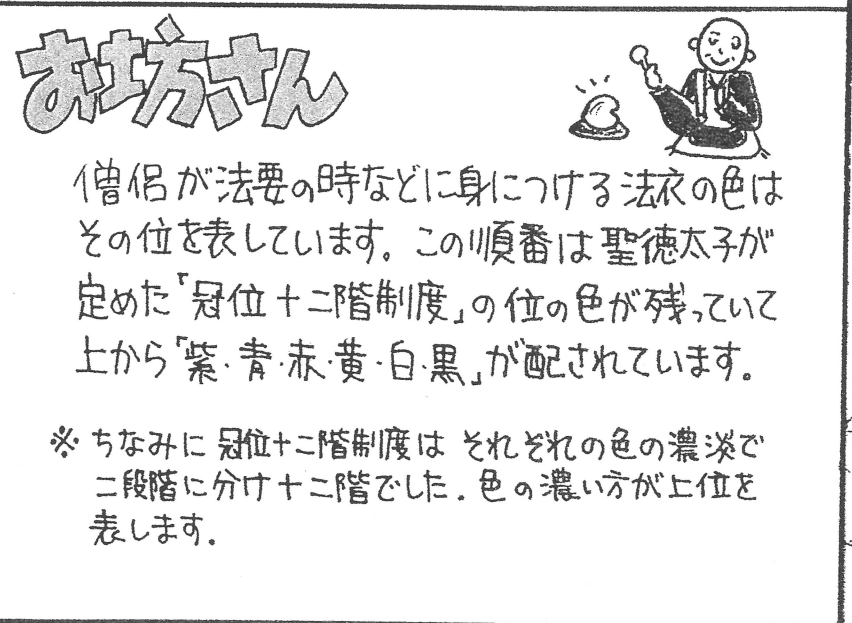 お坊さん
僧侶が法要の時などに身につける法衣の色は
その位を表しています。この順番は聖徳太子が
定めた「冠位十二階制度」の位の色が残っていて
上から「紫・青・赤・黄・白・黒」が配されています。
※ ちなみに冠位十二階制度は それぞれの色の濃淡で
二段階に分け十二階でした。色の濃い方が上位を
表します。